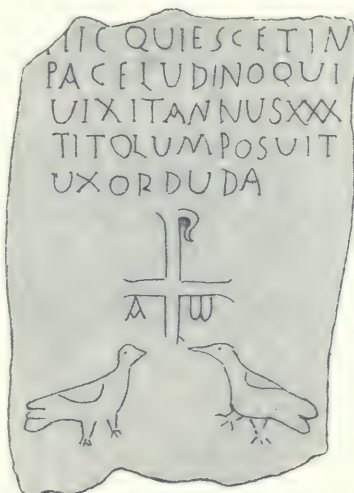 HIC QUIESCET IN
PACE LUDINO QUI
UIXIT ANNUS XXX
TITOLUM POSUIT
UXOR DUDA
A ω